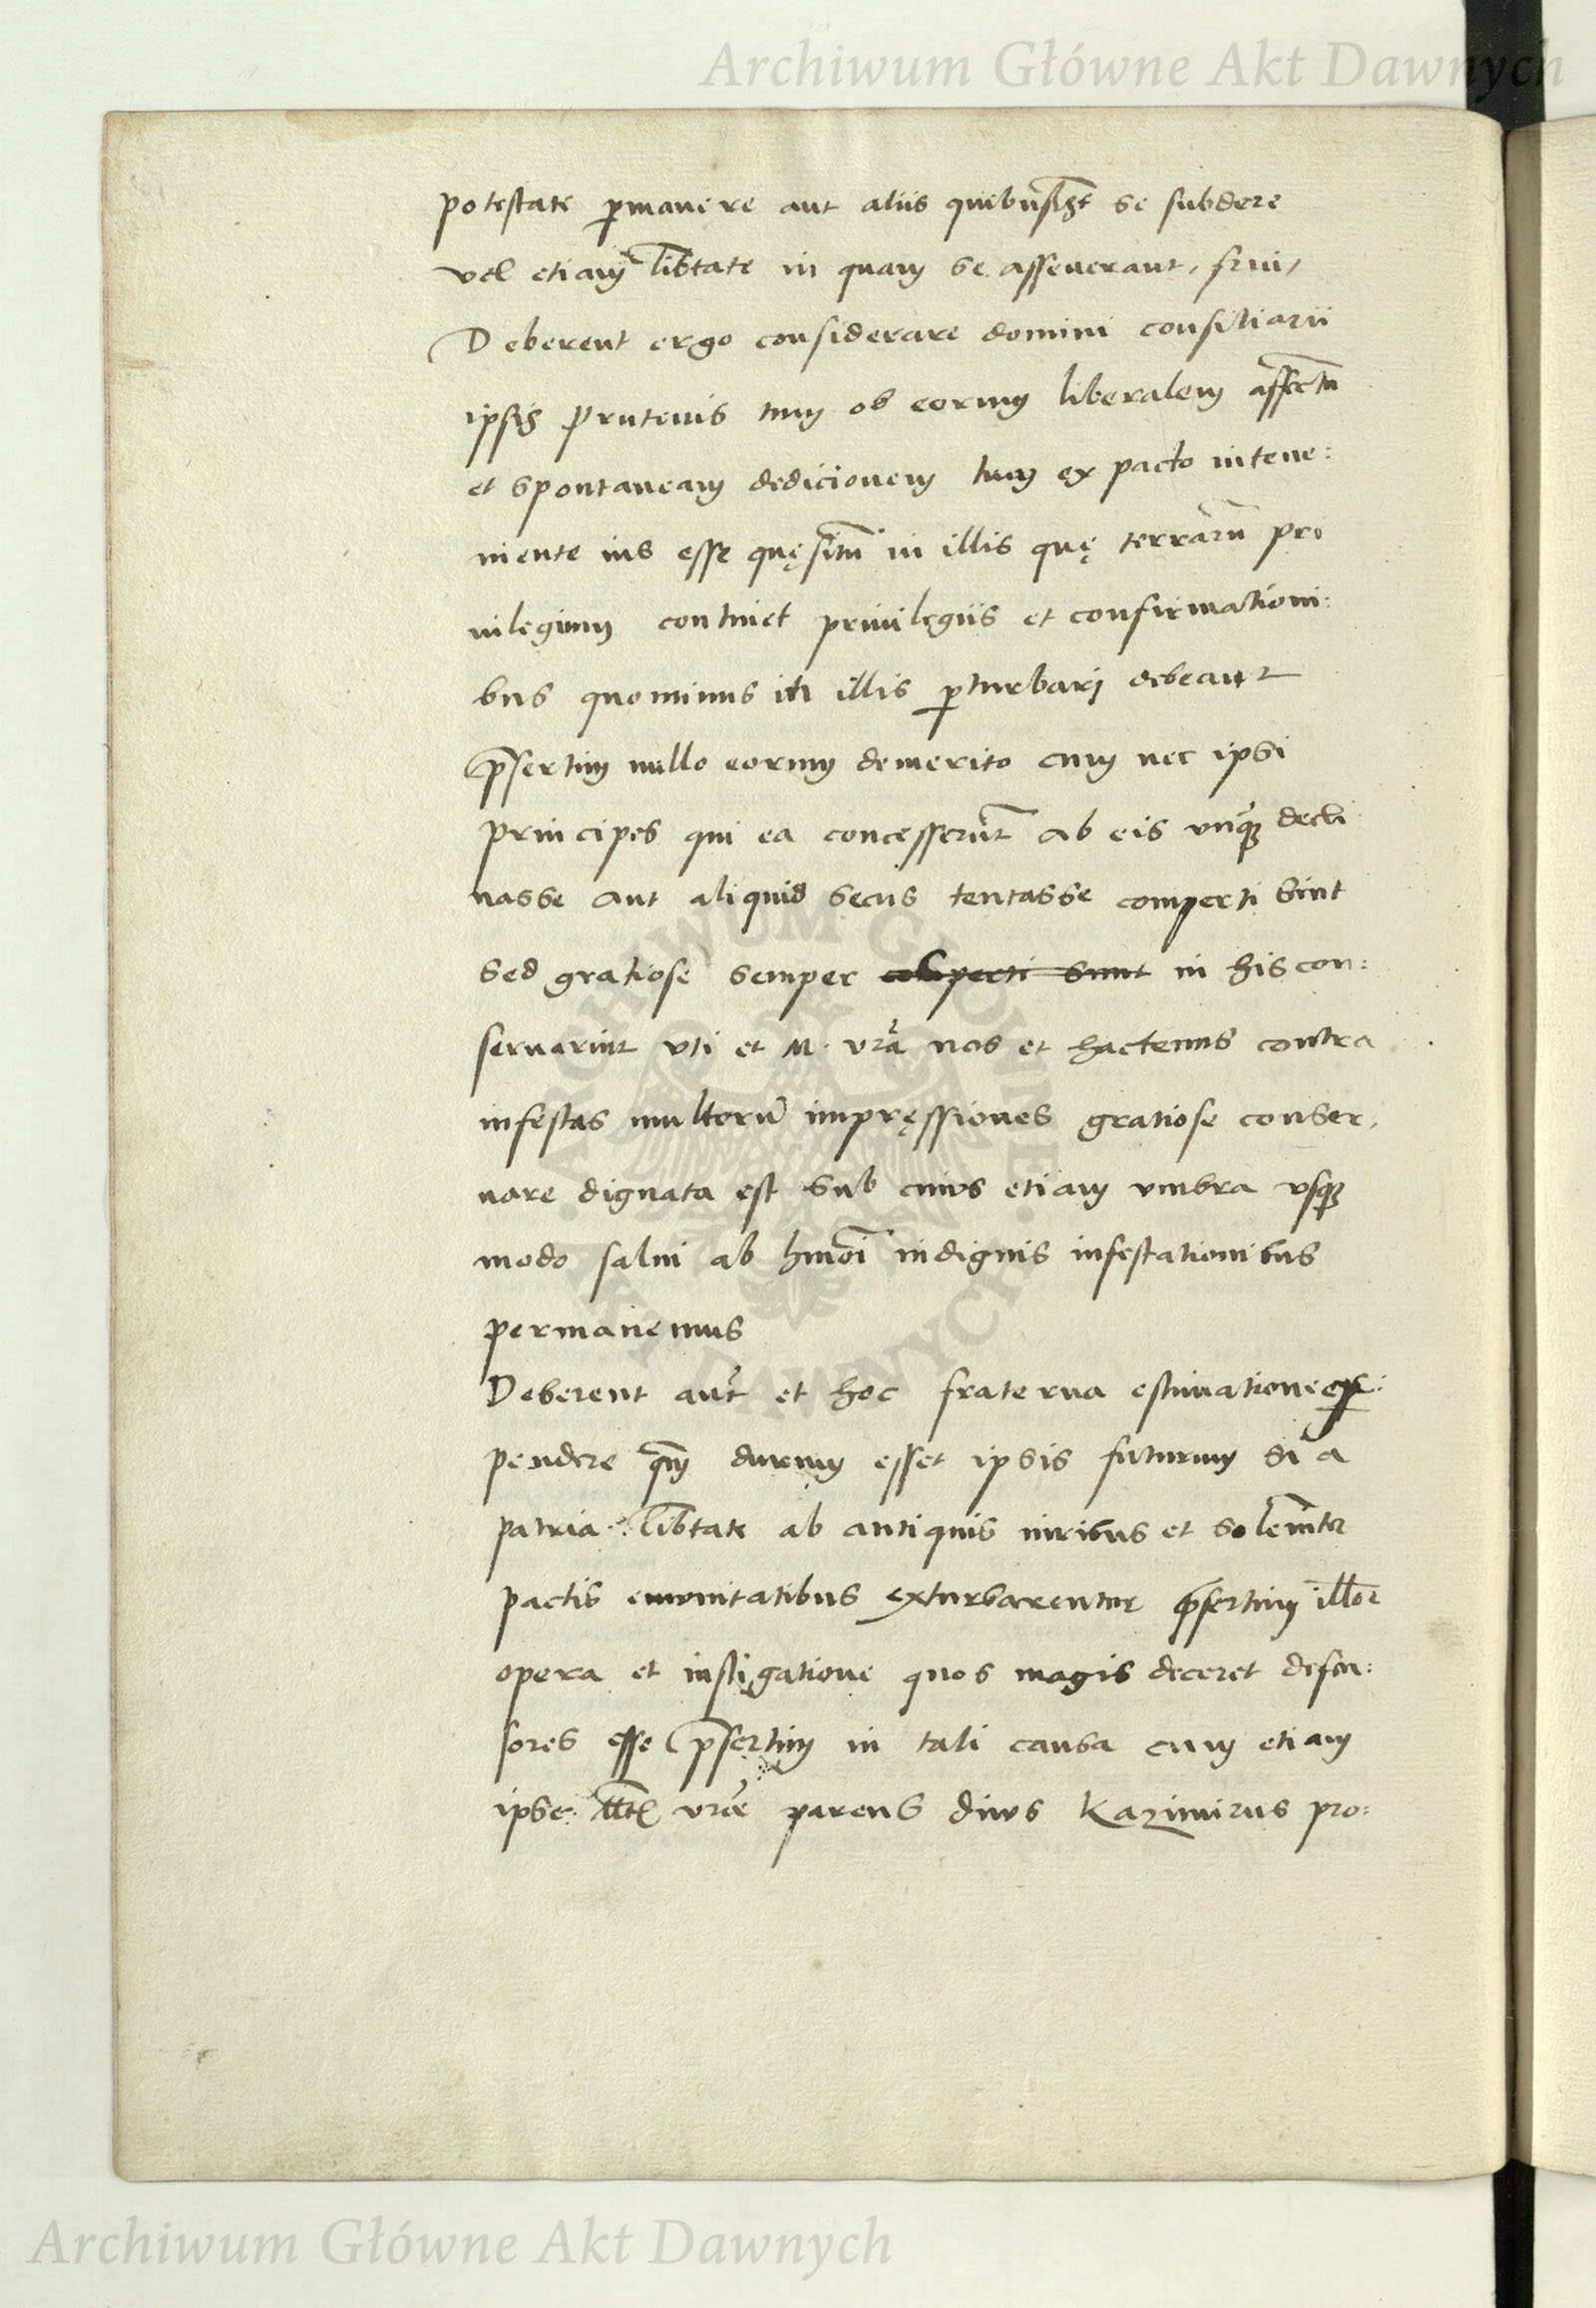 Archiwum Główne Akt Dawnych
potestate permanere aut aliis quibuslibet se subdere
vel etiam libtate in quam se asseuerant, frui,
Deberent ergo considerare domini consiliarii
ipsis Prutenis tum ob eorum liberalem affectū
et spontaneam dedicionem tum ex pacto interue:
niente ius esse quęsitū in illis quę terrarū pri
uilegium continet priuilegiis et confirmationi:
bus quominus in illis perturbari debeant
presertim nullo eorum demerito cum nec ipsi
principes qui ea concesserūt ab eis vnquam decli
nasse aut aliquid secus tentasse comperti sint
sed gratiose semper comperti sunt in his con:
seruarint vti et M. vrā nos et hactenus contra
infestas multorū impręssiones gratiose conser,
uare dignata est sub cuius etiam vmbra vsque
modo salui ab hmōi indignis infestationibus
permanemus
Deberent aūt et hoc fraterna estimatione ex:
pendere quam durum esset ipsis futurum si a
patria libtate ab antiquis iuribus et solemniter
pactis emonitatibus exturbarentur presertim illor
opera et instigatione quos magis deceret defen:
sores esse presertim in tali causa cum etiam
ipse vrae parens diuus Kazimirus pro:
ARCHIWUM GŁÓWNE AKT DAWNYCH
Archiwum Główne Akt Dawnych